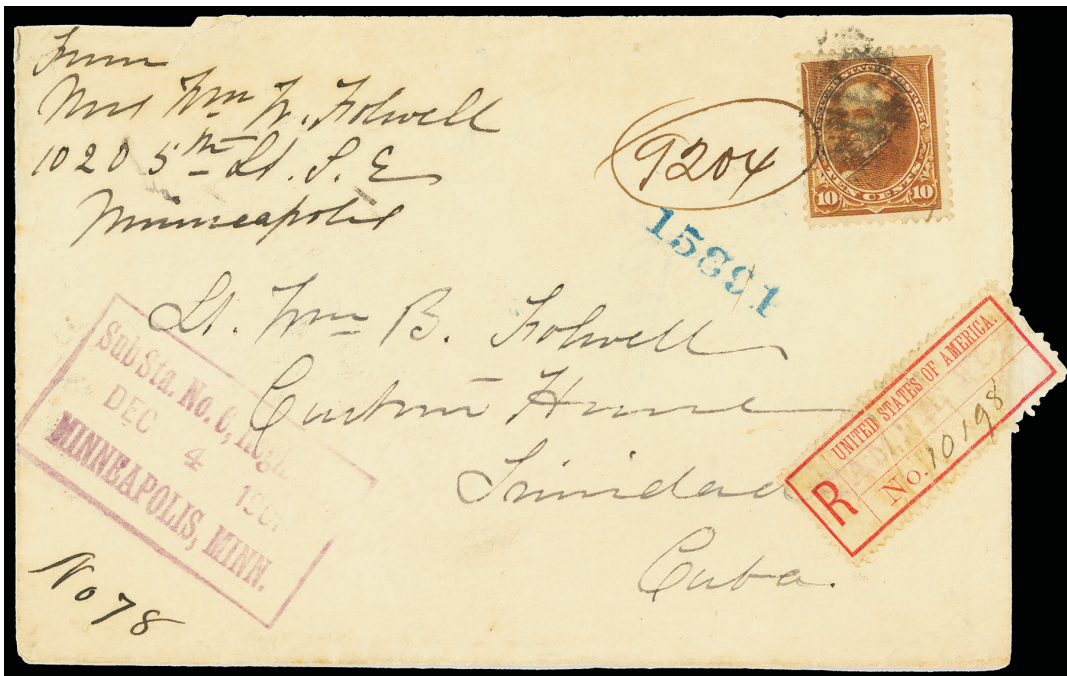 From
Mrs Wm W. Folwell
1020 5th St. S. E
Minneapolis
9204
UNITED STATES POSTAGE
TEN CENTS
10 10
15891
Lt. Wm B. Folwell
Custom House
Trinidad
Cuba.
Sub Sta. No. 6,
DEC 4
MINNEAPOLIS, MINN.
UNITED STATES OF AMERICA.
R No. 10198
No 78